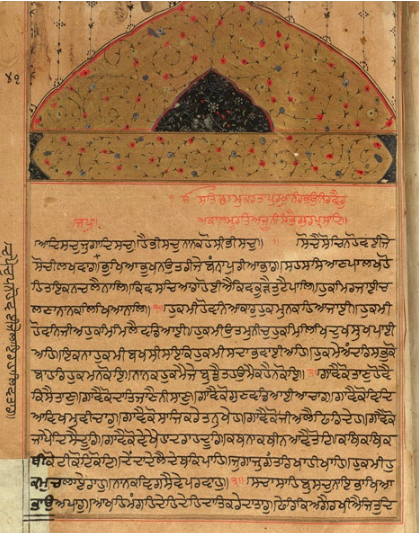 ੴ ਸਤਿਨਾਮੁਕਰਤਾਪੁਰਖੁਨਿਰਭਉਨਿਰਵੈਰੁ
ਅਕਾਲਮੂਰਤਿਅਜੂਨੀਸੈਭੰਗੁਰਪ੍ਰਸਾਦਿ॥
ਜਪੁ॥
॥ਆਦਿਸਚੁਜੁਗਾਦਿਸਚੁ॥ਹੈਭੀਸਚੁਨਾਨਕਹੋਸੀਭੀਸਚੁ॥ ਸੋਚੈਸੋਚਿਨਹੋਵਈਜੇ
ਸੋਚੀਲਖਵਾਰ॥ਭੁਖਿਆਭੁਖਨਉਤਰੀਜੇਬੰਨਾਪੁਰੀਆਭਾਰ॥ਸਹਸਸਿਆਣਪਾਲਖਹੋ
ਹਿਤਇਕਨਚਲੈਨਾਲਿ॥ਕਿਵਸਚਿਆਰਾਹੋਈਐਕਿਵਕੂੜੈਤੁਟੈਪਾਲਿ॥ਹੁਕਮਿਰਜਾਈਚ
ਲਣਾਨਾਨਕਲਿਖਿਆਨਾਲਿ॥੧॥ਹੁਕਮੀਹੋਵਨਿਆਕਾਰਹੁਕਮੁਨਕਹਿਆਜਾਈ॥ਹੁਕਮੀ
ਹੋਵਨਿਜੀਅਹੁਕਮਿਮਿਲੈਵਡਿਆਈ॥ਹੁਕਮੀਉਤਮੁਨੀਚੁਹੁਕਮਿਲਿਖਿਦੁਖਸੁਖਪਾਈ
ਅਹਿ॥ਇਕਨਾਹੁਕਮੀਬਖਸੀਸਇਕਿਹੁਕਮੀਸਦਾਭਵਾਈਅਹਿ॥ਹੁਕਮੈਅੰਦਰਿਸਭੁਕੋ
ਬਾਹਰਿਹੁਕਮਨਕੋਇ॥ਨਾਨਕਹੁਕਮੈਜੇਬੁਝੈਤਹਉਮੈਕਹੈਨਕੋਇ॥੨॥ਗਾਵੈਕੋਤਾਣੁਹੋਵੈ
ਕਿਸੈਤਾਣੁ॥ਗਾਵੈਕੋਦਾਤਿਜਾਣੈਨੀਸਾਣੁ॥ਗਾਵੈਕੋਗੁਣਵਡਿਆਈਆਚਾਰ॥ਗਾਵੈਕੋਵਿਦਿ
ਆਵਿਖਮੁਵੀਚਾਰੁ॥ਗਾਵੈਕੋਸਾਜਿਕਰੇਤਨੁਖੇਹ॥ਗਾਵੈਕੋਜੀਅਲੈਫਿਰਿਦੇਹ॥ਗਾਵੈਕੋ
ਜਾਪੈਦਿਸੈਦੂਰਿ॥ਗਾਵੈਕੋਵੇਖੈਹਾਦਰਾਹਦੂਰਿ॥ਕਥਨਾਕਥੀਨਆਵੈਤੋਟਿ॥ਕਥਿਕਥਿਕ
ਥੀਕੋਟੀਕੋਟਿਕੋਟਿ॥ਦੇਂਦਾਦੇਲੈਦੇਥਕਿਪਾਹਿ॥ਜੁਗਾਜੁਗੰਤਰਿਖਾਹੀਖਾਹਿ॥ਹੁਕਮੀਹੁ
ਕਮੁਚਲਾਏਰਾਹੁ॥ਨਾਨਕਵਿਗਸੈਵੇਪਰਵਾਹੁ॥੩॥ਸਾਚਾਸਾਹਿਬੁਸਾਚੁਨਾਇਭਾਖਿਆ
ਭਾਉਅਪਾਰੁ॥ਆਖਹਿਮੰਗਹਿਦੇਹਿਦੇਹਿਦਾਤਿਕਰੇਦਾਤਾਰੁ॥ਫੇਰਿਕਿਅਗੈਰਖੀਐਜਿਤੁਦਿ